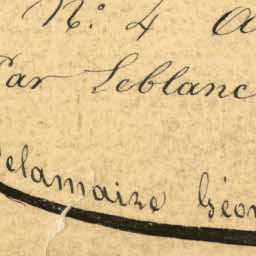 N.º 4 a
Par Leblanc
Delamaire Géom